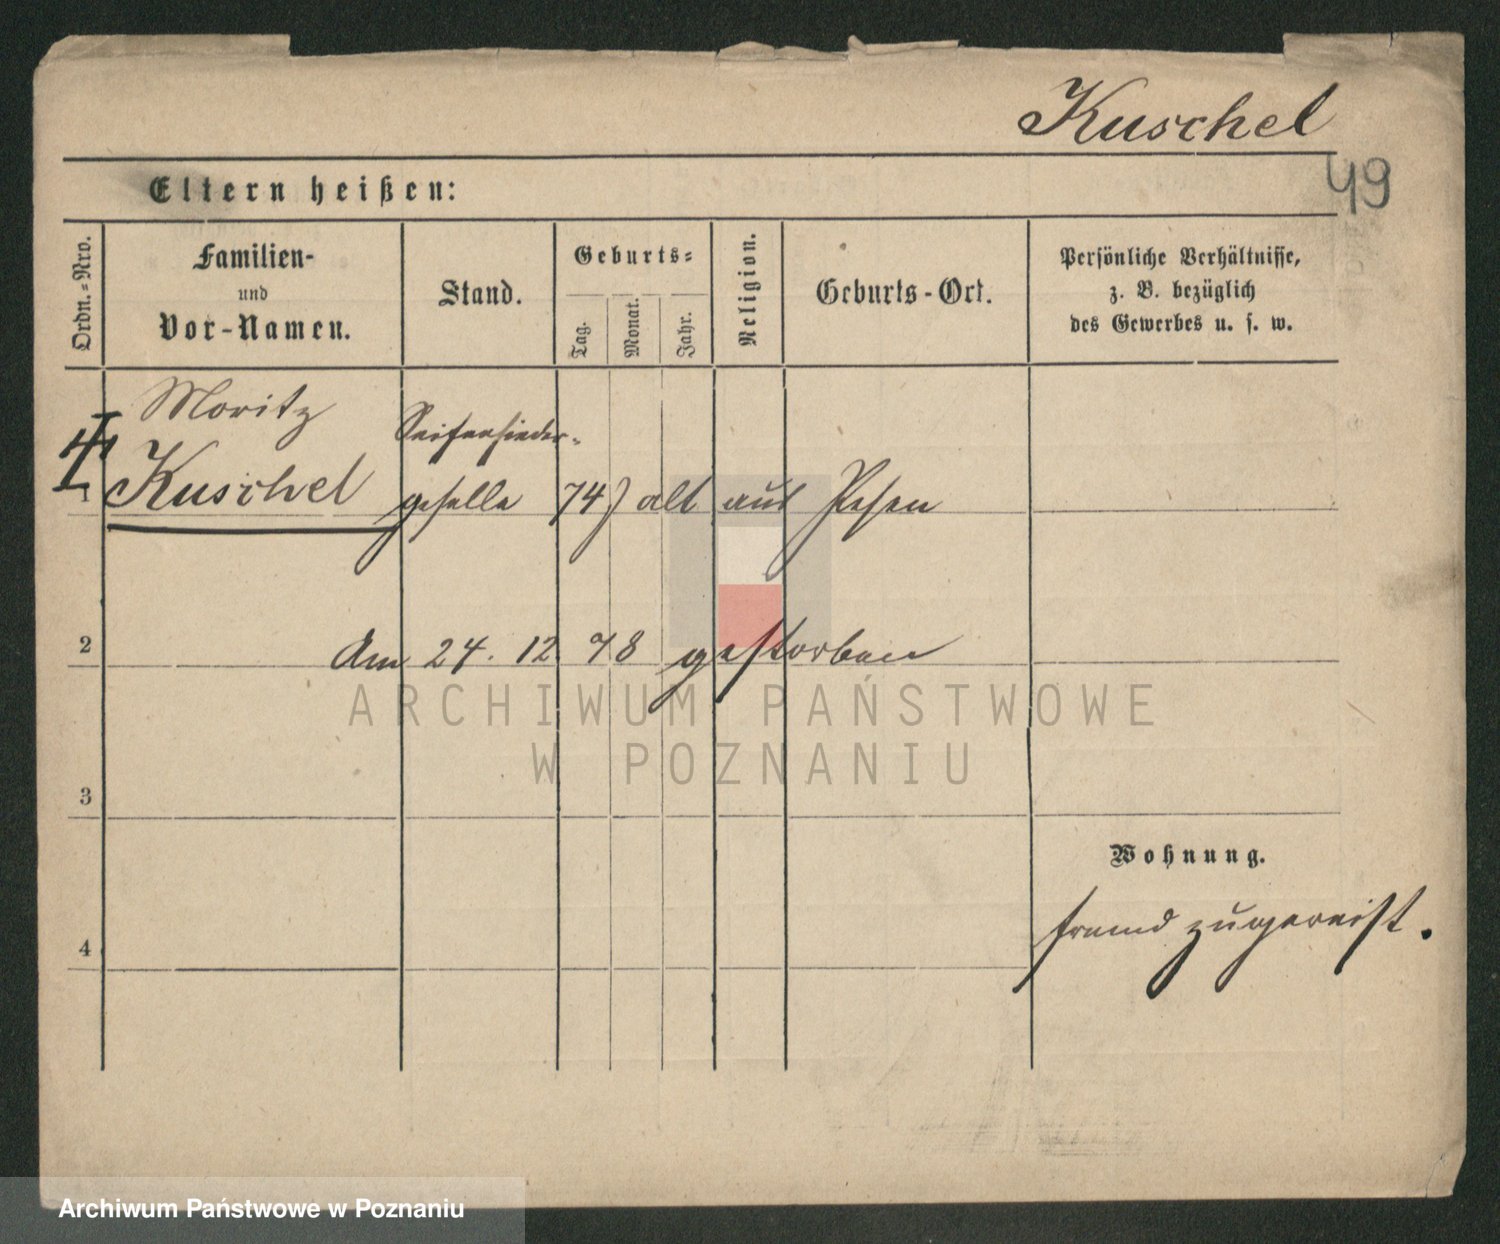 Kuschel
49
Eltern heißen:
Ordn.-Nro.
Familien-
und
Vor-Namen.
Stand.
Geburts-
Tag.
Monat.
Jahr.
Religion.
Geburts-Ort.
Persönliche Verhältnisse,
z. B. bezüglich
des Gewerbes u. s. w.
Moritz
Seifensieder-
1 Kuschel geselle 74) alt aus Posen
2 Am 24. 12 78 gestorben
ARCHIWUM PAŃSTWOWE
W POZNANIU
3
Wohnung.
fremd zugereist.
4
Archiwum Państwowe w Poznaniu